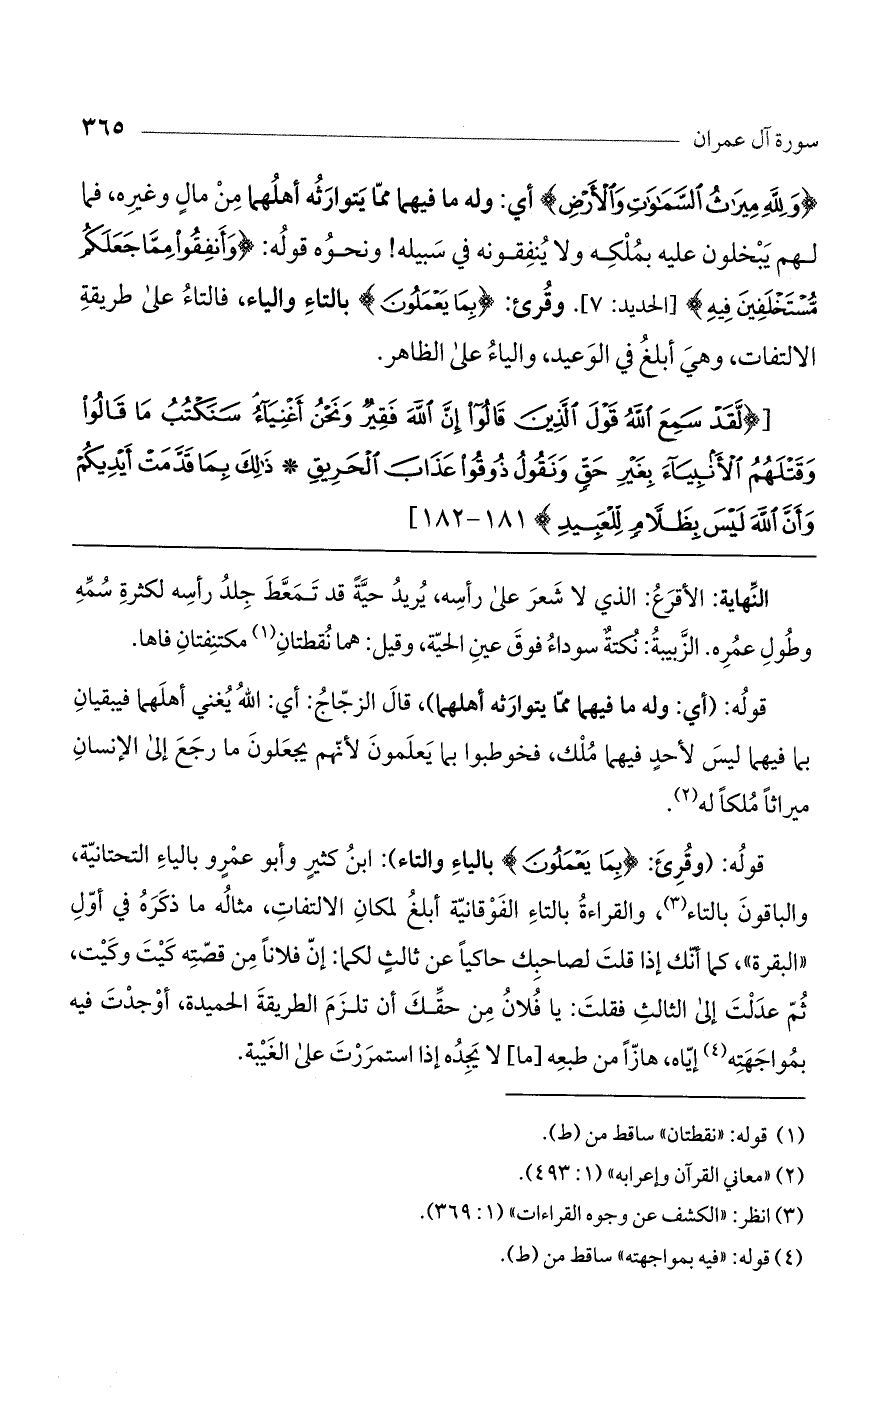 سورة آل عمران ٣٦٥
﴿وَلِلَّهِ مِيرَٰثُ ٱلسَّمَٰوَٰتِ وَٱلْأَرْضِ﴾ أي: وله ما فيهما ممّا يَتوارَثُه أهلُهما مِنْ مالٍ وغيرِه، فما
لـهم يَبْخلون عليه بمُلْكِـه ولا يُنفِقـونه في سَبيله! ونحـوُه قولُه: ﴿وَأَنفِقُوا۟ مِمَّا جَعَلَكُم
مُّسْتَخْلَفِينَ فِيهِ﴾ [الحديد: ٧]. وقُرئ: ﴿بِمَا يَعْمَلُونَ﴾ بالتاءِ والياء، فالتاءُ علىٰ طريقةِ
الالتفات، وهيَ أبلغُ في الوَعيد، والياءُ علىٰ الظاهر.
[﴿لَّقَدْ سَمِعَ ٱللَّهُ قَوْلَ ٱلَّذِينَ قَالُوٓا۟ إِنَّ ٱللَّهَ فَقِيرٌ وَنَحْنُ أَغْنِيَآءُ سَنَكْتُبُ مَا قَالُوا۟
وَقَتْلَهُمُ ٱلْأَنۢبِيَآءَ بِغَيْرِ حَقٍّ وَنَقُولُ ذُوقُوا۟ عَذَابَ ٱلْحَرِيقِ * ذَٰلِكَ بِمَا قَدَّمَتْ أَيْدِيكُمْ
وَأَنَّ ٱللَّهَ لَيْسَ بِظَلَّامٍ لِّلْعَبِيدِ﴾ ١٨١-١٨٢]
النِّهاية: الأقرَعُ: الذي لا شَعرَ علىٰ رأسِه، يُريدُ حيَّةً قد تَـمَعَّطَ جِلدُ رأسِه لكثرةِ سُمِّهِ
وطُولِ عمُرِه. الزَّبيبةُ: نُكتةٌ سوداءُ فوقَ عينِ الحيّة، وقيل: هما نُقطتانِ(١) مكتنِفتانِ فاها.
قولُه: (أي: وله ما فيهما ممّا يتوارَثه أهلهما)، قالَ الزجّاجُ: أي: اللهُ يُغني أهلَهما فيبقيانِ
بما فيهما ليسَ لأحدٍ فيهما مُلْك، فخوطبوا بما يَعلَمونَ لأنّهم يجعَلونَ ما رجَعَ إلىٰ الإنسانِ
ميراثاً مُلكاً له(٢).
قولُه: (وقُرِئَ: ﴿بِمَا يَعْمَلُونَ﴾ بالياءِ والتاء): ابنُ كثيرٍ وأبو عمْرٍو بالياءِ التحتانيّة،
والباقونَ بالتاء(٣)، والقراءةُ بالتاءِ الفَوْقانيّة أبلغُ لمكانِ الالتفاتِ، مثالُه ما ذكَرَهُ في أوّلِ
«البقرة»، كما أنّك إذا قلتَ لصاحبِك حاكياً عن ثالثٍ لكما: إنّ فلاناً مِن قصّتِه كَيْتَ وكَيْت،
ثُمّ عدَلْتَ إلىٰ الثالثِ فقلتَ: يا فُلانُ مِن حقِّـكَ أن تلـزَمَ الطريقةَ الحميدة، أوْجدْتَ فيه
بمُواجَهَتِه(٤) إيّاه، هازّاً من طبعِه [ما] لا يَجِدُه إذا استمرَرْتَ علىٰ الغَيْبة.
(١) قوله: «نقطتان» ساقط من (ط).
(٢) «معاني القرآن وإعرابه» (١: ٤٩٣).
(٣) انظر: «الكشف عن وجوه القراءات» (١: ٣٦٩).
(٤) قوله: «فيه بمواجهته» ساقط من (ط).